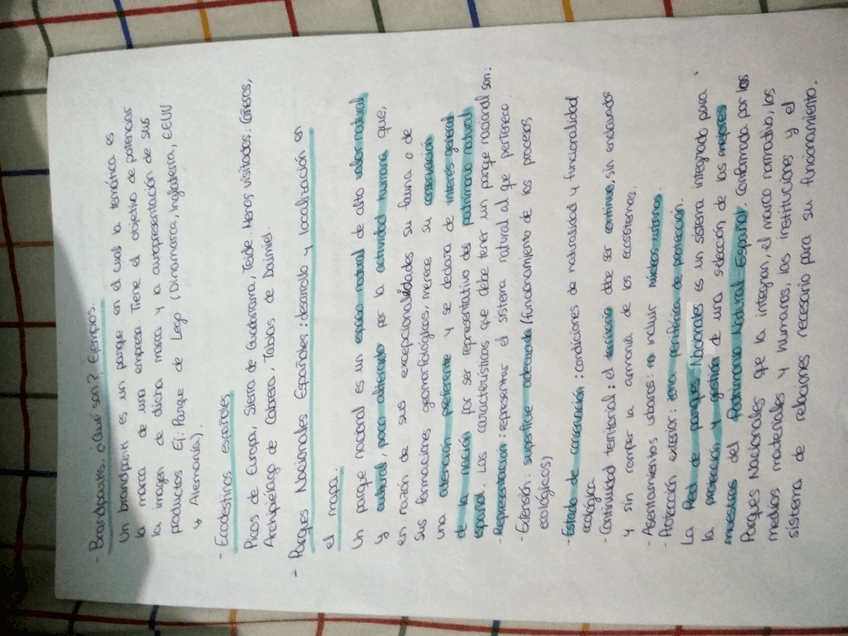 - Brandparks. ¿Qué son? Ejemplos.
Un brandpark es un parque en el cual la temática es
la marca de una empresa. Tiene el objetivo de potenciar
la imagen de dicha marca y la autopresentación de sus
productos. Ej: Parque de Lego (Dinamarca, Inglaterra, EEUU
y Alemania).
- Ecodestinos españoles
Picos de Europa, Sierra de Guadarrama, Teide. Menos visitados: Cañeros,
Archipiélago de Cabrera, Tablas de Daimiel.
- Parques Nacionales Españoles: desarrollo y localización en
el mapa.
Un parque nacional es un espacio natural de alto valor natural
y cultural, poco alterado por la actividad humana que,
en razón de sus excepcionalidades su fauna o de
sus formaciones geomorfológicas, merece su conservación
una atención preferente y se declara de interés general
de la nación por ser representativo del patrimonio natural
español. Las características que debe tener un parque nacional son:
- Representación: representar el sistema natural al que pertenece.
- Extensión: superficie adecuada (funcionamiento de los procesos
ecológicos)
- Estado de conservación: condiciones de naturalidad y funcionalidad
ecológica
- Continuidad territorial: el territorio debe ser continuo, sin enclavados
y sin romper la armonía de los ecosistemas.
- Asentamientos urbanos: no incluir núcleos urbanos.
- Protección exterior: zona periférica de protección.
La Red de Parques Nacionales es un sistema integrado para
la protección y gestión de una selección de las mejores
muestras del Patrimonio Natural Español. Conformada por los
Parques Nacionales que la integran, el marco normativo, los
medios materiales y humanos, las instituciones y el
sistema de relaciones necesario para su funcionamiento.